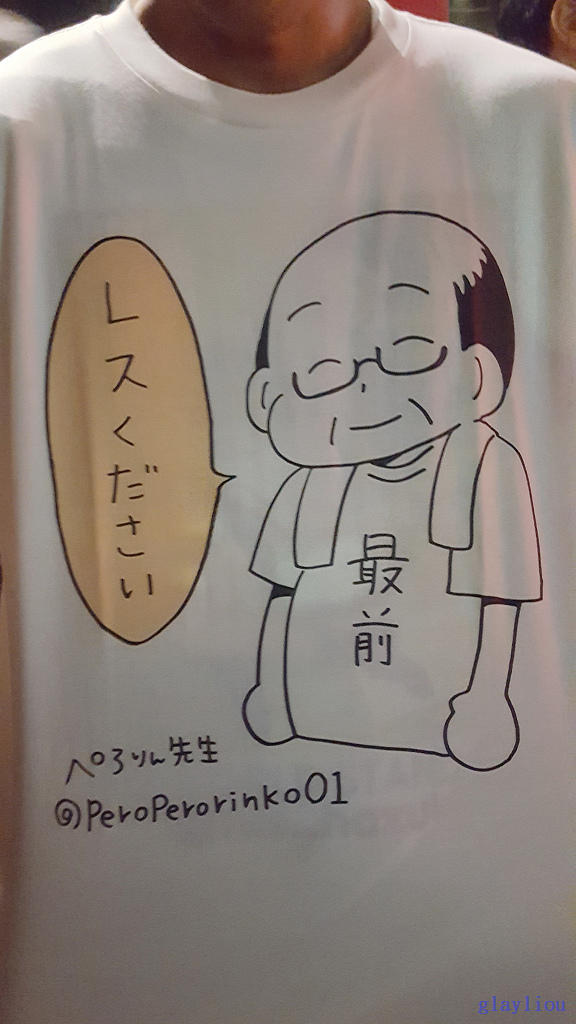 レスください
最前
ぺろりん先生
@PeroPerorinko01
glayliou